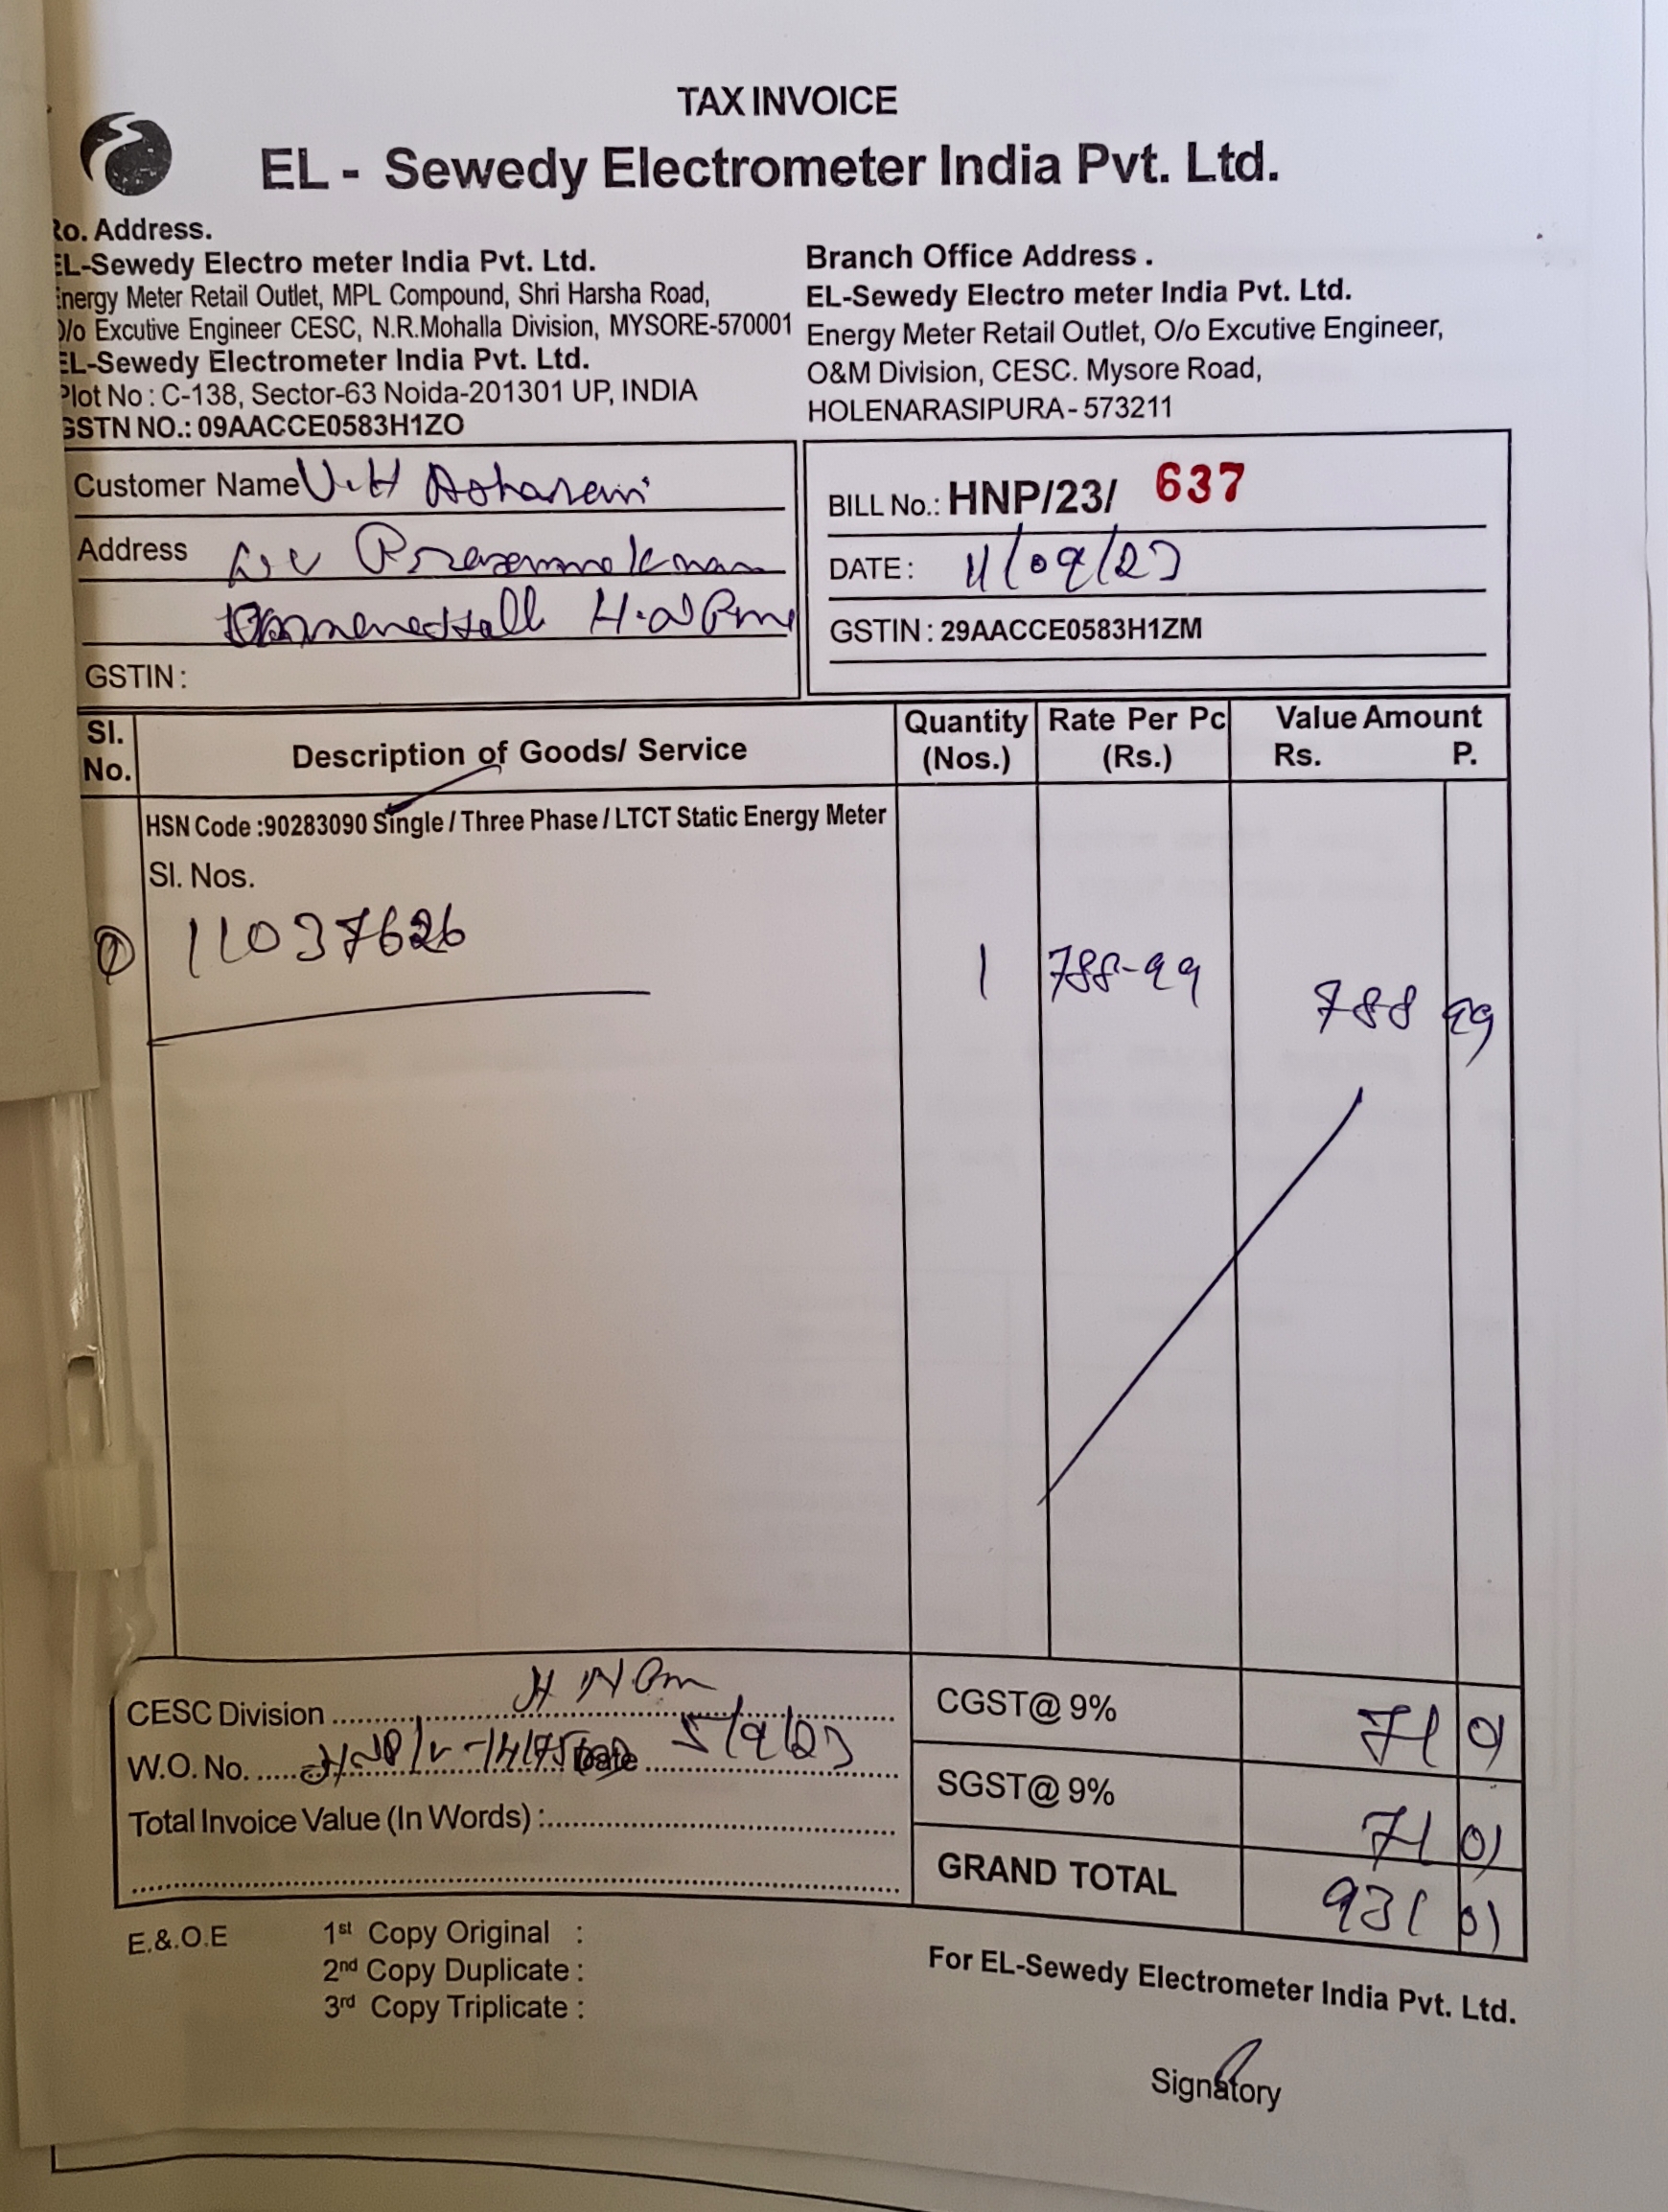 TAX INVOICE
EL - Sewedy Electrometer India Pvt. Ltd.
Ro. Address.
EL-Sewedy Electro meter India Pvt. Ltd.
Energy Meter Retail Outlet, MPL Compound, Shri Harsha Road,
O/o Excutive Engineer CESC, N.R.Mohalla Division, MYSORE-570001
EL-Sewedy Electrometer India Pvt. Ltd.
Plot No : C-138, Sector-63 Noida-201301 UP, INDIA
GSTN NO.: 09AACCE0583H1ZO
Branch Office Address .
EL-Sewedy Electro meter India Pvt. Ltd.
Energy Meter Retail Outlet, O/o Excutive Engineer,
O&M Division, CESC. Mysore Road,
HOLENARASIPURA - 573211
Customer Name U.H Asharani
Address
GSTIN :
BILL No.: HNP/23/ 637
DATE : 11/09/23
GSTIN : 29AACCE0583H1ZM
Sl. No. Description of Goods/ Service Quantity (Nos.) Rate Per Pc (Rs.) Value Amount Rs. P.
HSN Code :90283090 Single / Three Phase / LTCT Static Energy Meter
Sl. Nos.
① 11037626 1 788-99 788 99
CESC Division
W.O. No. Date 5/9/23
Total Invoice Value (In Words) :
CGST@ 9% 71 01
SGST@ 9% 71 01
GRAND TOTAL 931 01
E.&.O.E
1st Copy Original :
2nd Copy Duplicate :
3rd Copy Triplicate :
For EL-Sewedy Electrometer India Pvt. Ltd.
Signatory